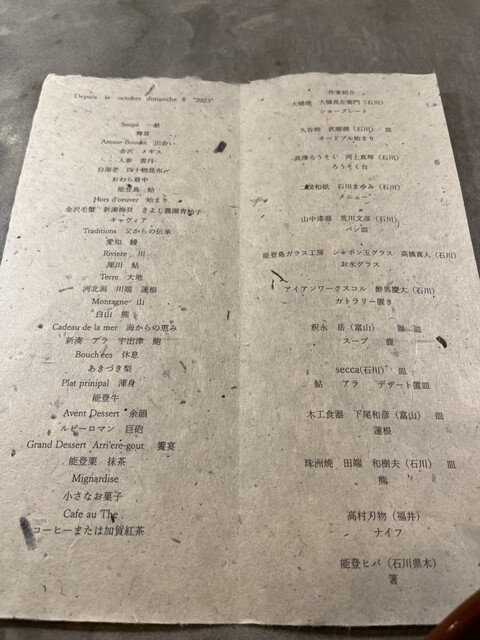 Depuis le octobre dimanche 8 "2023"
Soupe 一献
舞茸
Amuse-Bouche 出会い
金沢 メギス
人参 雲丹
白海老 四十物昆布
おわら最中
能登島 蛤
Hors d'oeuver 始まり
金沢毛蟹 新湊梅貝 きよし農園青柚子
キャヴィア
Traditions 父からの伝承
愛知 鰻
Riviere 川
犀川 鮎
Terre 大地
河北潟 川端 蓮根
Montagne 山
白山 熊
Cadeau de la mer 海からの恵み
新湊 アラ 宇出津 鮑
Bouch'ees 休息
あきづき梨
Plat prinipal 渾身
能登牛
Avent Dessert 余韻
ルビーロマン 巨砲
Grand Dessert Arri'ere-gout 饗宴
能登栗 抹茶
Mignardise
小さなお菓子
Cafe au The
コーヒーまたは加賀紅茶
作家紹介
大樋焼 大樋長左衛門(石川)
ショープレート
久谷焼 武腰潤(石川) 皿
オードブル始まり
高澤ろうそく 河上真琴(石川)
ろうそく台
和紙 石川まゆみ(石川)
メニュー
山中漆器 荒川文彦(石川)
パン皿
能登島ガラス工房 シャボン玉グラス 高橋真人(石川)
お水グラス
アイアンワークスコル 酢馬慶太(石川)
カトラリー置き
釈永 岳(富山) 皿
スープ 鹿
secca(石川) 皿
鮎 アラ デザート置皿
木工食器 下尾和彦(富山) 皿
蓮根
珠洲焼 田端 和樹夫(石川) 皿
熊
高村刃物(福井)
ナイフ
能登ヒバ(石川県木)
箸